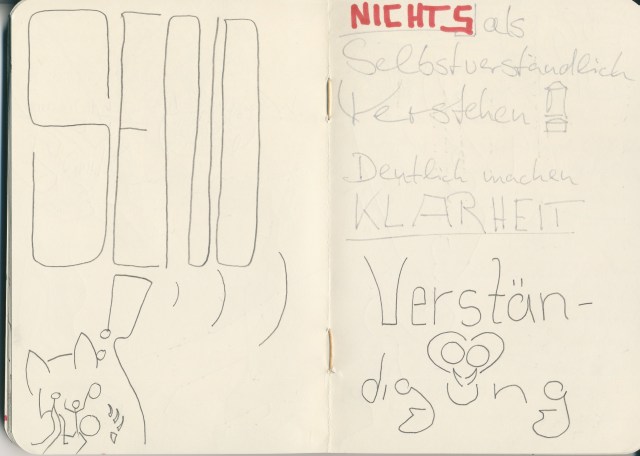 SEND
NICHTS als
Selbstverständlich
Verstehen!
Deutlich machen
KLARHEIT
Verstän-
digung